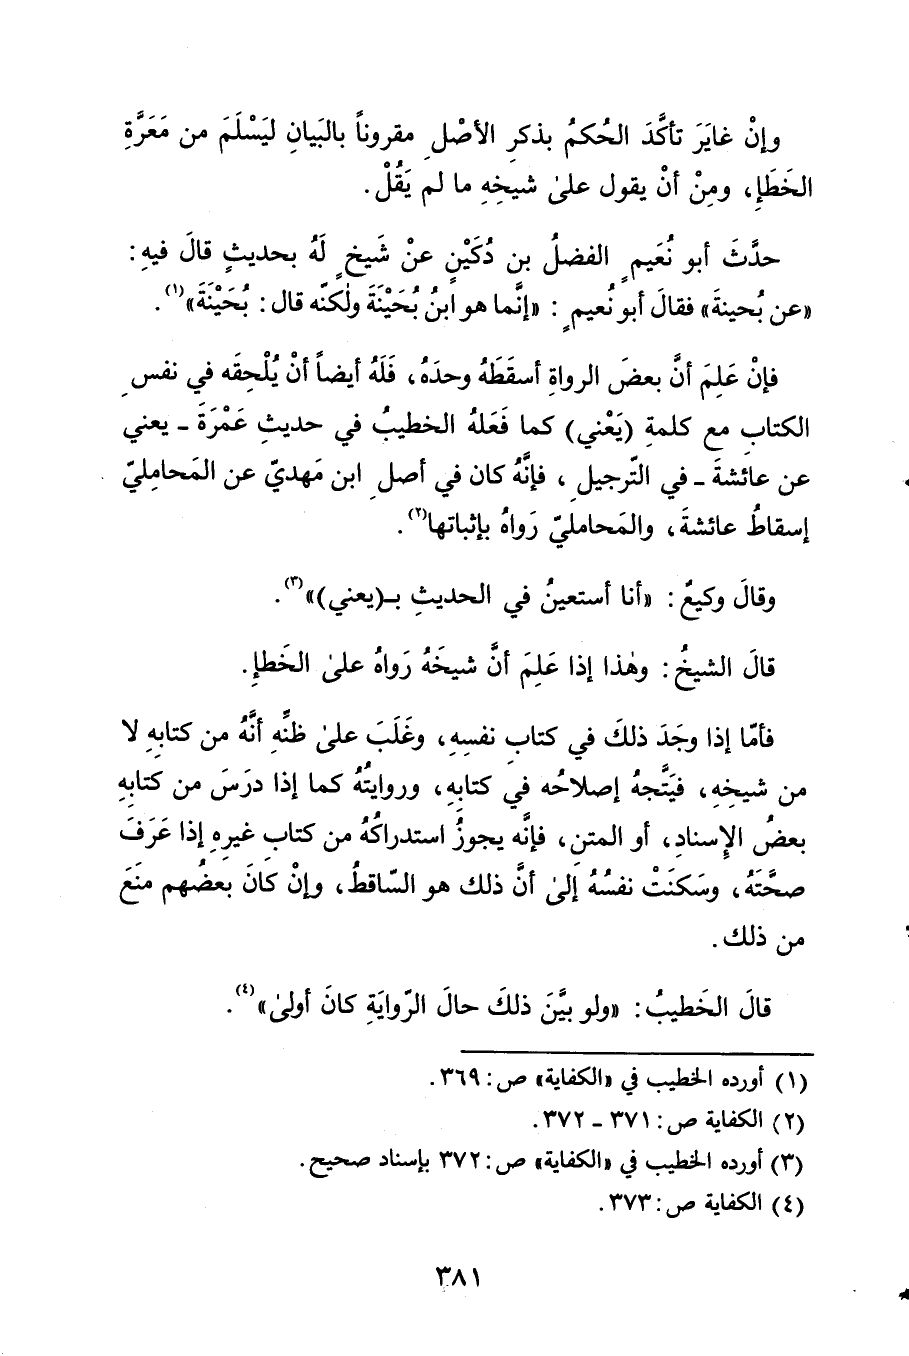 وإنْ غايَرَ تأكَّدَ الحُكمُ بذكرِ الأصْلِ مقروناً بالبَيانِ ليَسْلَمَ من مَعَرَّةِ
الخَطَإِ، ومِنْ أنْ يقول علىٰ شيخِهِ ما لم يَقُلْ.
حدَّثَ أبو نُعَيمٍ الفضلُ بن دُكَيْنٍ عنْ شَيخٍ لَهُ بحديثٍ قالَ فيهِ:
«عن بُحينةَ» فقالَ أبو نُعيمٍ: «إنَّما هو ابنُ بُحَيْنَةَ ولٰكنّه قال: بُحَيْنَةَ»(١).
فإنْ عَلِمَ أنَّ بعضَ الرواةِ أسقَطَهُ وحدَهُ، فَلَهُ أيضاً أنْ يُلْحِقَه في نفسِ
الكتابِ مع كلمةِ (يَعْني) كما فَعَلهُ الخطيبُ في حديثِ عَمْرَةَ ـ يعني
عن عائشةَ ـ في التّرجيلِ، فإنَّهُ كان في أصلِ ابن مَهديّ عن المَحامِليّ
إسقاطُ عائشةَ، والمَحامليّ رَواهُ بإثباتها(٢).
وقالَ وكيعٌ: «أنا أستعينُ في الحديثِ بـ(يعني)»(٣).
قالَ الشيخُ: وهٰذا إذا عَلِمَ أنَّ شيخَهُ رَواهُ علىٰ الخَطإِ.
فأمّا إذا وجَدَ ذلكَ في كتابِ نفسِهِ، وغَلَبَ علىٰ ظنِّهِ أنَّهُ من كتابِهِ لا
من شيخِهِ، فيَتَّجهُ إصلاحُه في كتابِهِ، وروايتُهُ كما إذا درَسَ من كتابِهِ
بعضُ الإِسنادِ، أو المتنِ، فإنَّه يجوزُ استدراكُهُ من كتابِ غيرِهِ إذا عَرَفَ
صحَّتَهُ، وسَكنَتْ نفسُهُ إلىٰ أنَّ ذلك هو السّاقطُ، وإنْ كانَ بعضُهم منَعَ
من ذلك.
قالَ الخَطيبُ: «ولو بيَّنَ ذلكَ حالَ الرّوايَةِ كانَ أولىٰ»(٤).
(١) أورده الخطيب في «الكفاية» ص: ٣٦٩.
(٢) الكفاية ص: ٣٧١ ـ ٣٧٢.
(٣) أورده الخطيب في «الكفاية» ص: ٣٧٢ بإسناد صحيح.
(٤) الكفاية ص: ٣٧٣.
٣٨١